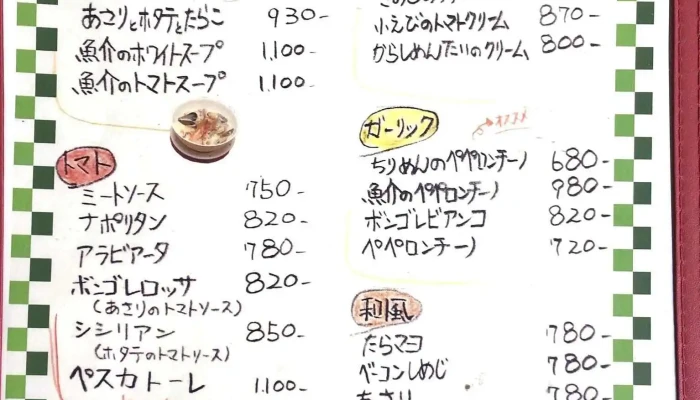 あさりとホタテとたらこ 930-
魚介のホワイトスープ 1,100-
魚介のトマトスープ 1,100-
トマト
ミートソース 750-
ナポリタン 820-
アラビアータ 780-
ボンゴレロッサ 820-
(あさりのトマトソース)
シシリアン 850-
(ホタテのトマトソース)
ペスカトーレ 1,100-
小えびのトマトクリーム 870-
からしめんたいのクリーム 800-
ガーリック
オススメ
ちりめんのペペロンチーノ 680-
魚介のペペロンチーノ 980-
ボンゴレビアンコ 820-
ペペロンチーノ 720-
和風
たらマヨ 780-
ベーコンしめじ 780-
あさり 780-